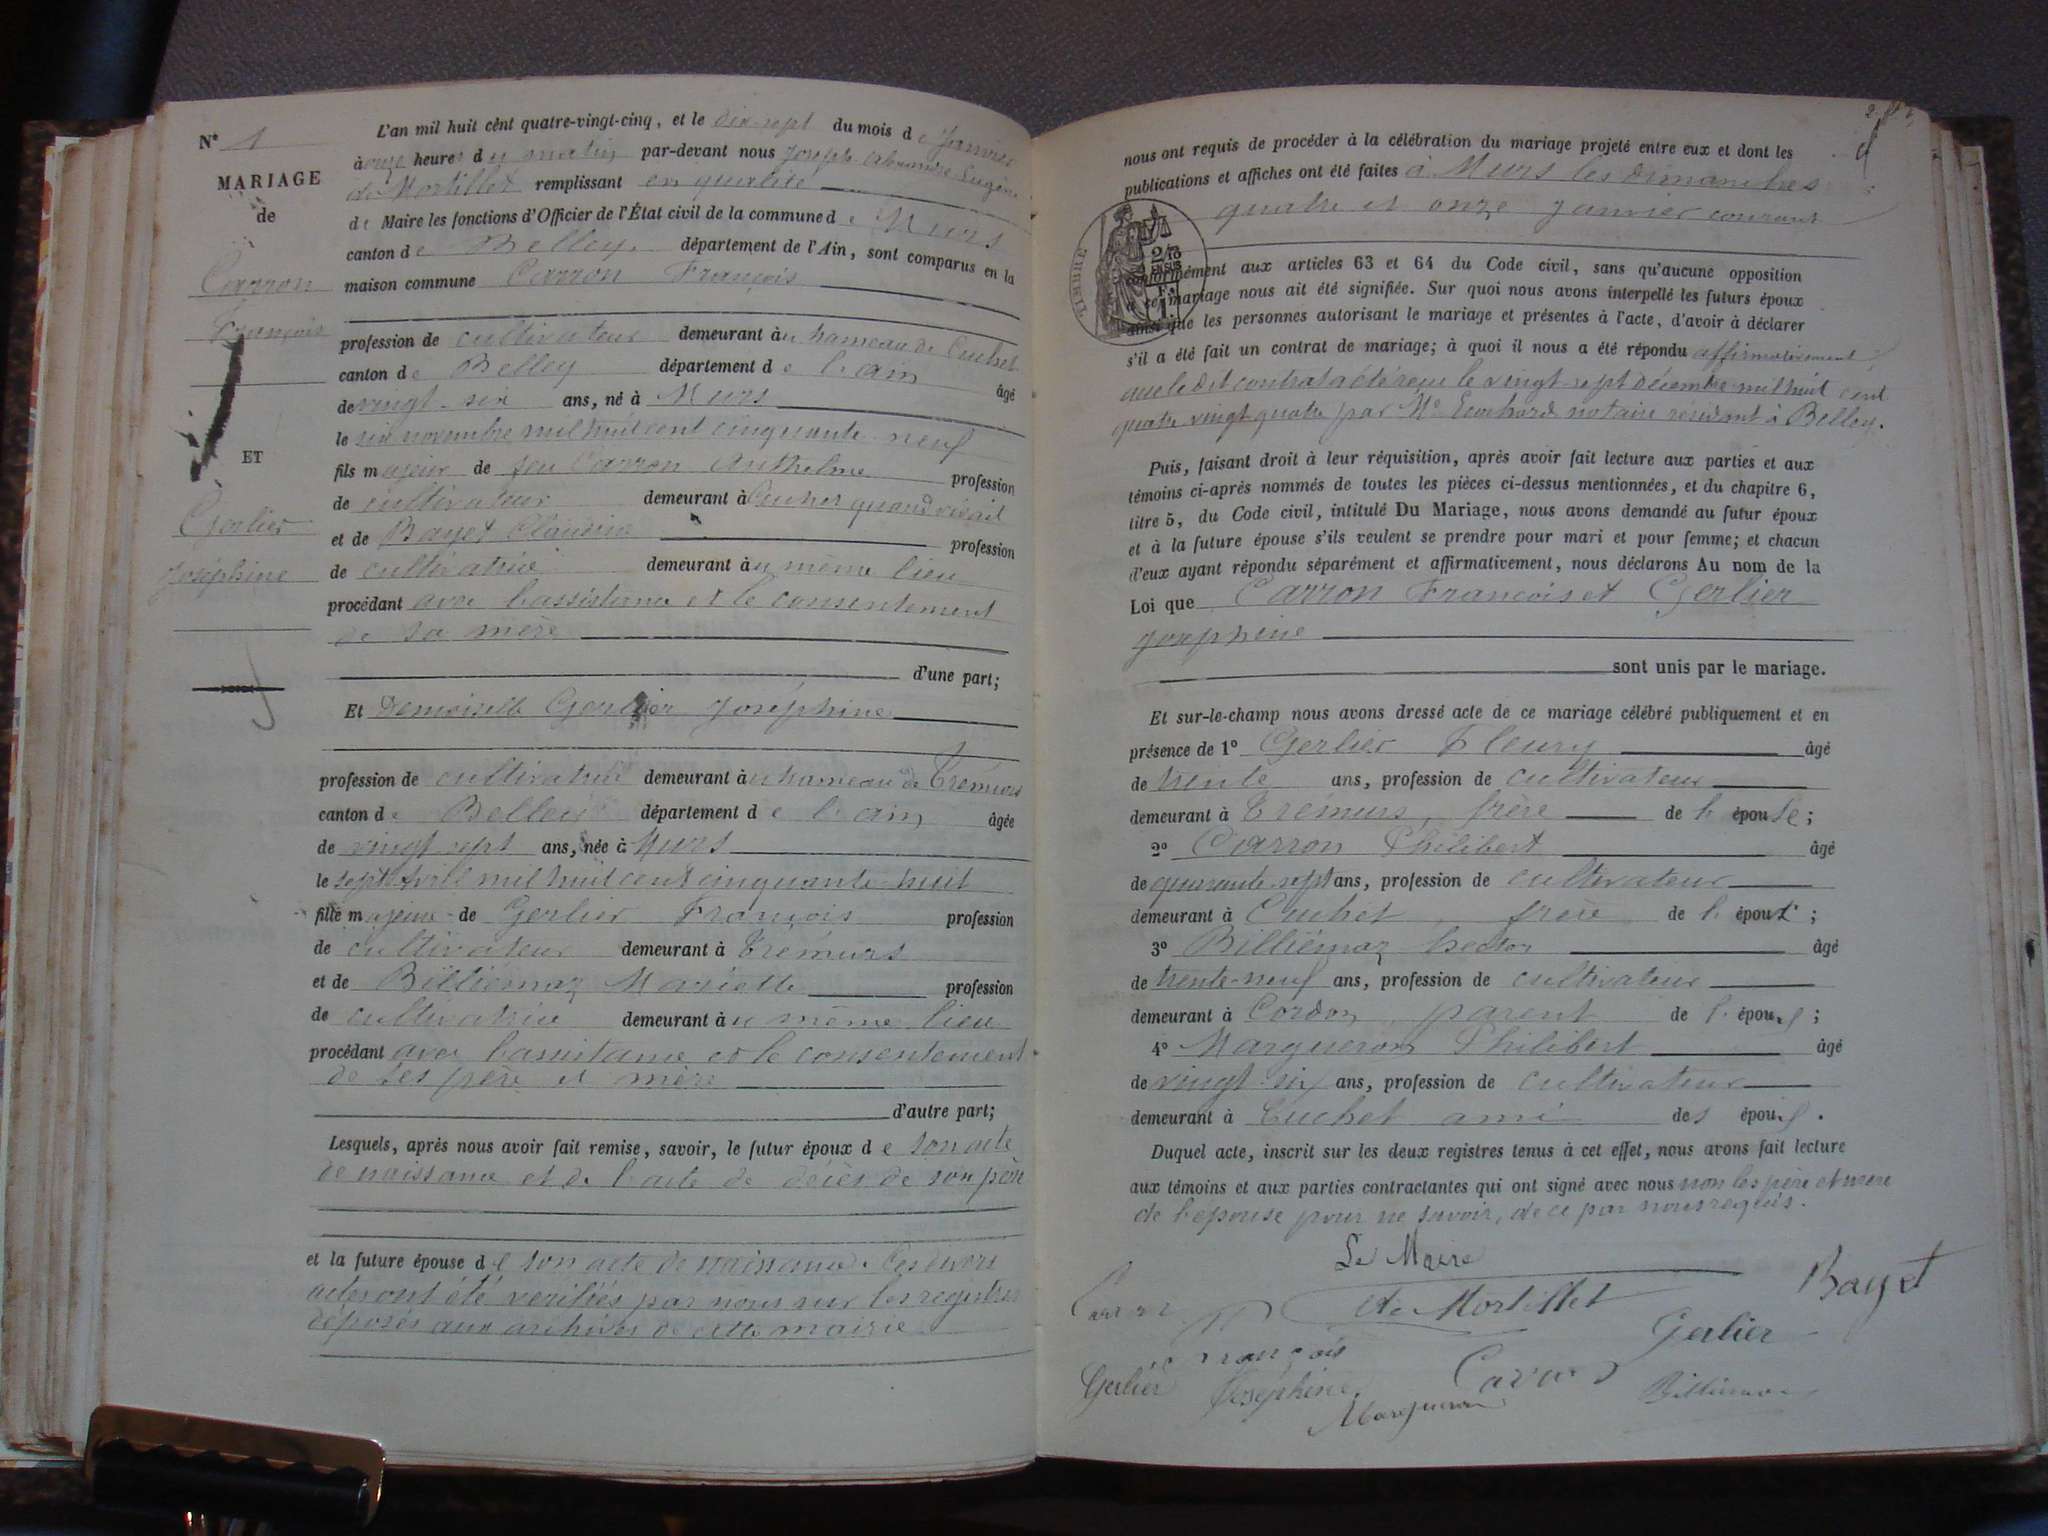 N° 1
MARIAGE
de
Carron
François
ET
Gerlier
Joséphine
L'an mil huit cent quatre-vingt-cinq, et le dix-sept du mois de Janvier
à onze heures du matin par-devant nous Joseph Alexandre Eugène
de Mortillet remplissant en qualité
de Maire les fonctions d'Officier de l'État civil de la commune de Murs
canton de Belley département de l'Ain, sont comparus en la
maison commune Carron François
profession de cultivateur demeurant au hameau de Cuchet
canton de Belley département de l'ain âgé
de vingt-six ans, né à Murs
le six novembre mil huit cent cinquante-neuf
fils majeur de feu Carron Anthelme profession
de cultivateur demeurant à Cuchet quand vivait
et de Bayet Claudine profession
de cultivatrice demeurant au même lieu
procédant avec l'assistance et le consentement
de sa mère
d'une part;
Et Demoiselle Gerlier Joséphine
profession de cultivatrice demeurant au hameau de Trémurs
canton de Belley département de l'ain âgée
de vingt sept ans, née à Murs
le sept Avril mil huit cent cinquante-huit
fille majeure de Gerlier François profession
de cultivateur demeurant à Trémurs
et de Billiémaz Mariette profession
de cultivatrice demeurant au même lieu
procédant avec l'assistance et le consentement
de ses père et mère
d'autre part;
Lesquels, après nous avoir fait remise, savoir, le futur époux de son acte
de naissance et de l'acte de décès de son père
et la future épouse de son acte de naissance. Ces divers
actes ont été vérifiés par nous sur les registres
déposés aux archives de cette mairie
nous ont requis de procéder à la célébration du mariage projeté entre eux et dont les
publications et affiches ont été faites à Murs les dimanches
quatre et onze janvier courant
TIMBRE
conformément aux articles 63 et 64 du Code civil, sans qu'aucune opposition
à ce mariage nous ait été signifiée. Sur quoi nous avons interpellé les futurs époux
ainsi que les personnes autorisant le mariage et présentes à l'acte, d'avoir à déclarer
s'il a été fait un contrat de mariage; à quoi il nous a été répondu affirmativement
que le dit contrat a été reçu le vingt-sept décembre mil huit cent
quatre vingt quatre par Me notaire résidant à Belley.
Puis, faisant droit à leur réquisition, après avoir fait lecture aux parties et aux
témoins ci-après nommés de toutes les pièces ci-dessus mentionnées, et du chapitre 6,
titre 5, du Code civil, intitulé Du Mariage, nous avons demandé au futur époux
et à la future épouse s'ils veulent se prendre pour mari et pour femme; et chacun
d'eux ayant répondu séparément et affirmativement, nous déclarons Au nom de la
Loi que Carron François et Gerlier
Joséphine
sont unis par le mariage.
Et sur-le-champ nous avons dressé acte de ce mariage célébré publiquement et en
présence de 1° Gerlier Fleury âgé
de trente ans, profession de cultivateur
demeurant à Trémurs, frère de l'épouse;
2° Carron Philibert âgé
de quarante sept ans, profession de cultivateur
demeurant à Cuchet, frère de l'époux;
3° Billiémaz hector âgé
de trente-neuf ans, profession de cultivateur
demeurant à Cordon, parent de l'épouse;
4° Margueron Philibert âgé
de vingt-six ans, profession de cultivateur
demeurant à Cuchet ami des époux.
Duquel acte, inscrit sur les deux registres tenus à cet effet, nous avons fait lecture
aux témoins et aux parties contractantes qui ont signé avec nous non les père et mère
de l'épouse pour ne savoir, de ce par nous requis.
Le Maire
Carron François
de Mortillet
Bayet
Gerlier
Gerlier Joséphine
Carron
Margueron
Billiémaz